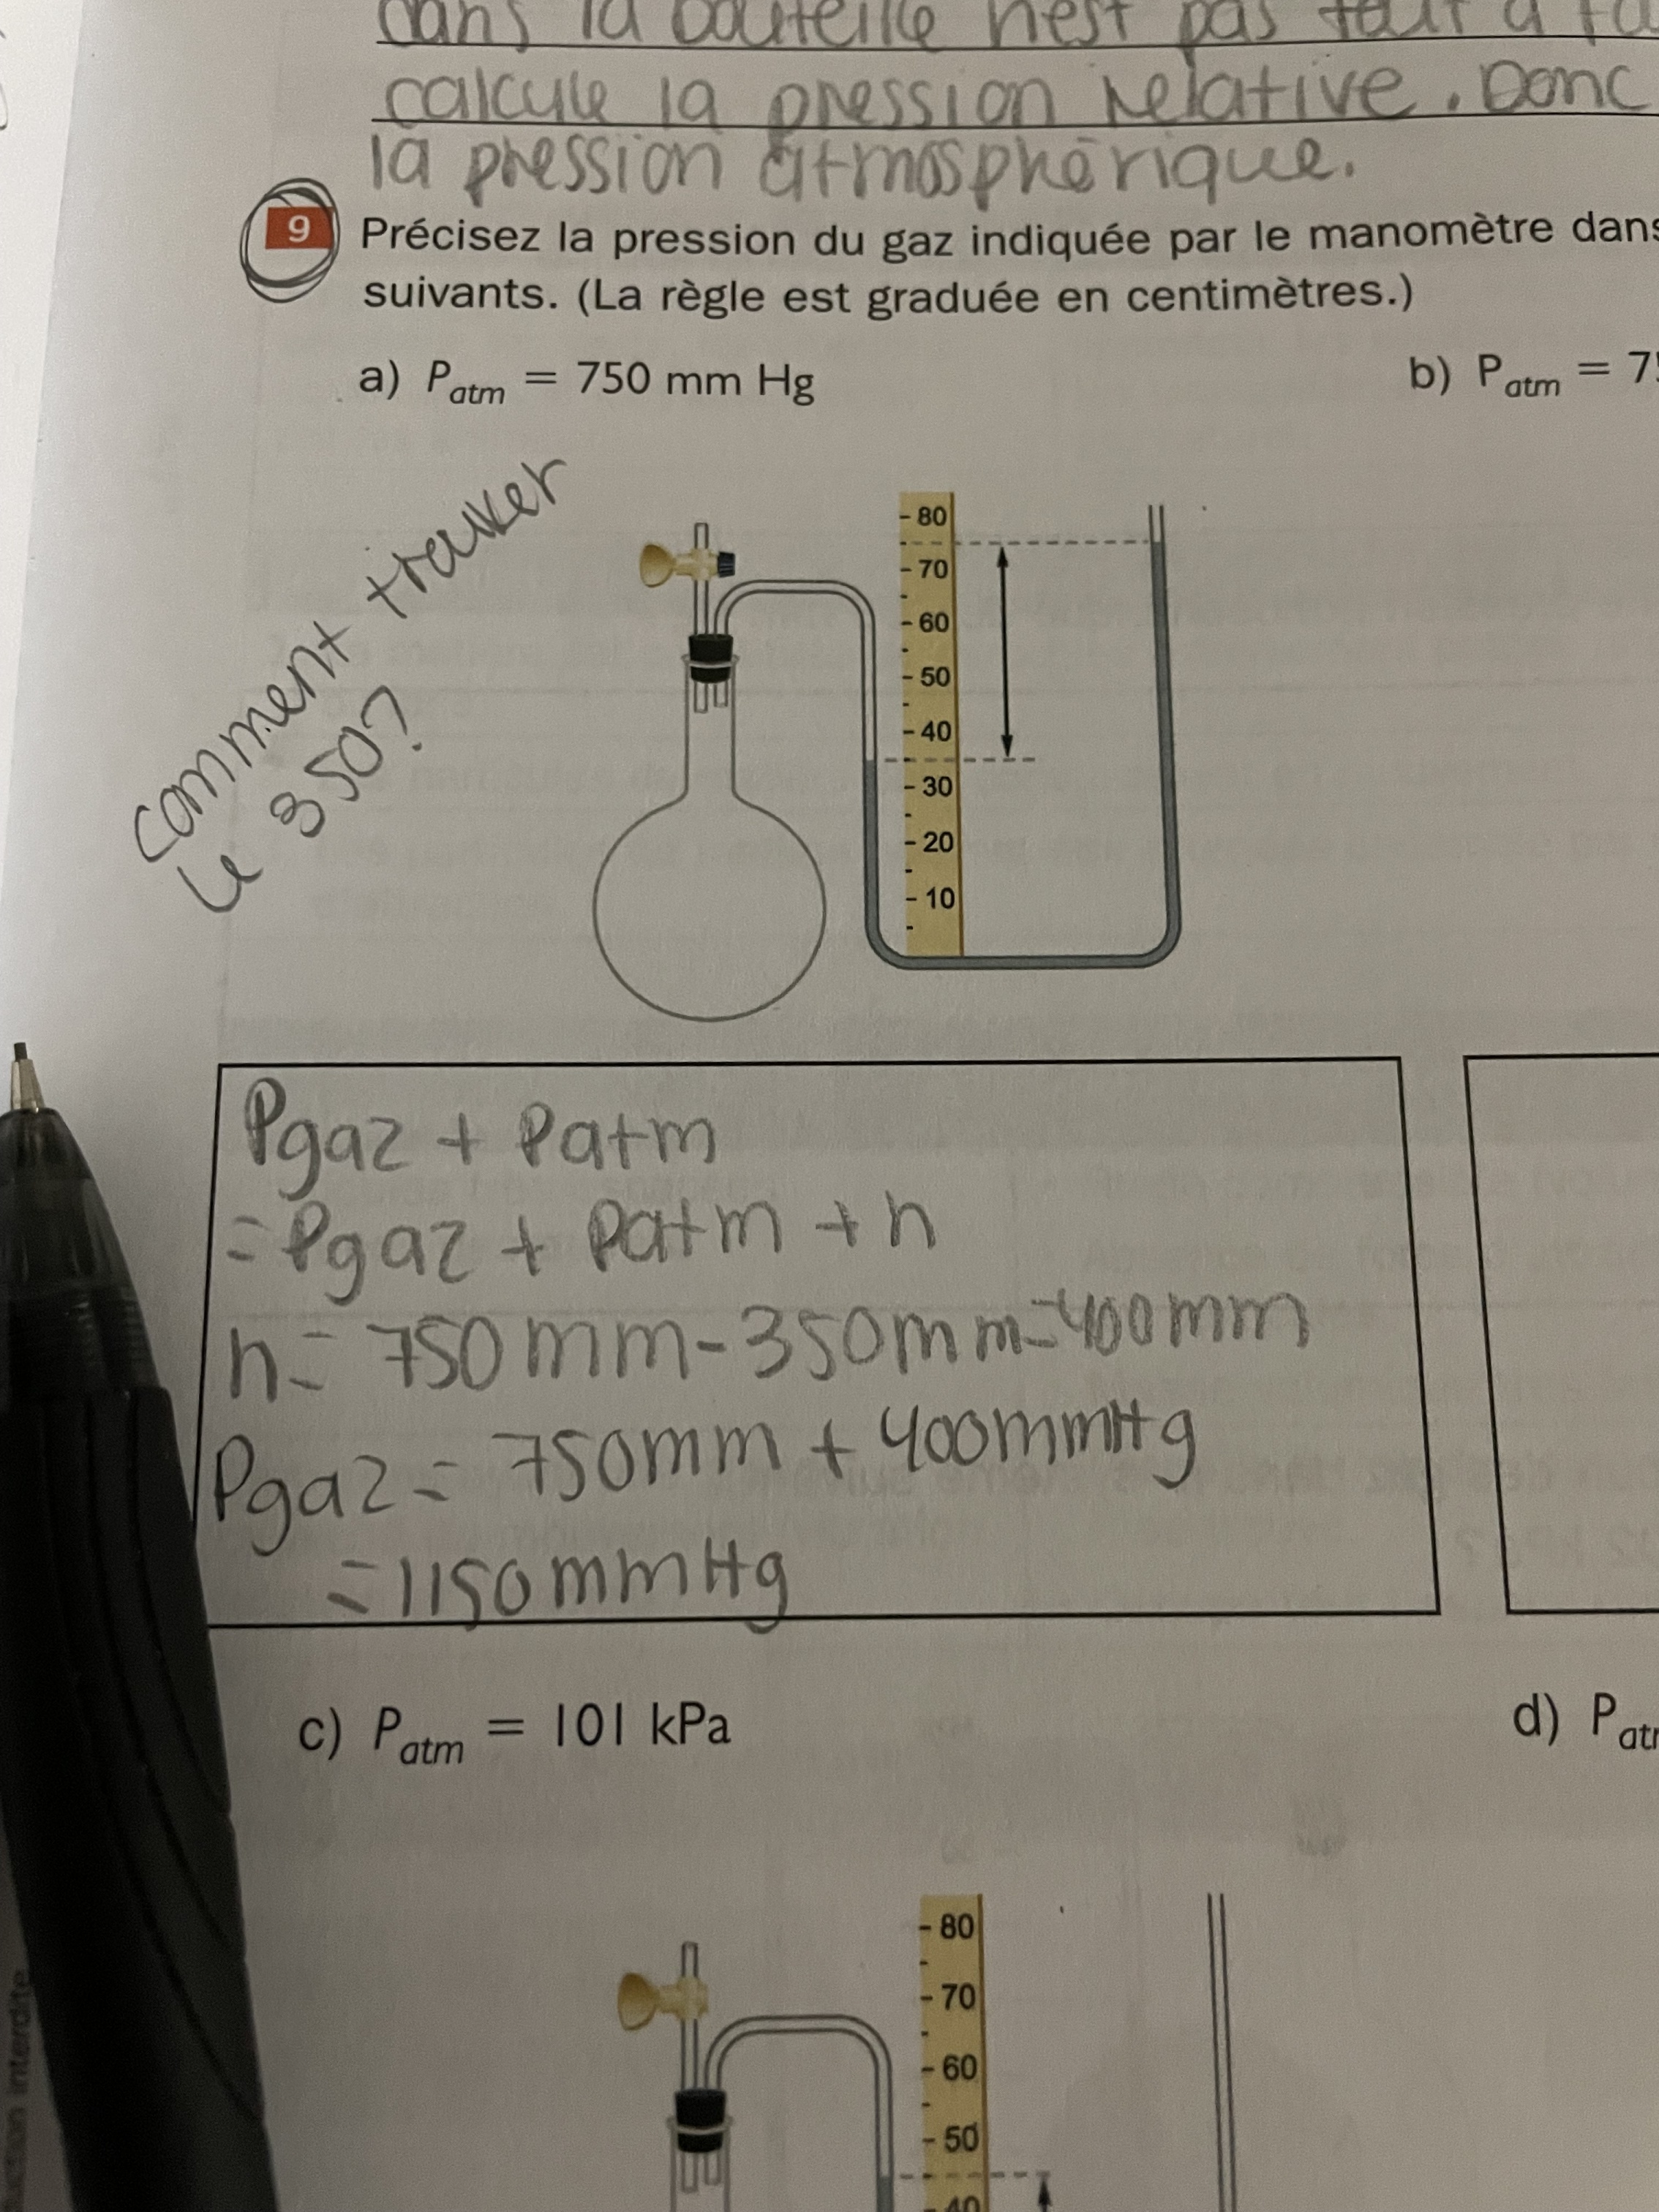 dans la bouteille n'est pas tout à fa
calcule la pression relative. Donc
la pression atmosphérique.
9 Précisez la pression du gaz indiquée par le manomètre dans
suivants. (La règle est graduée en centimètres.)
a) Patm = 750 mm Hg
b) Patm = 75
comment trouver
le 350?
80
70
60
50
40
30
20
10
Pgaz + Patm
= Pgaz + Patm + h
h = 750 mm - 350 mm = 400 mm
Pgaz = 750 mm + 400 mmHg
= 1150 mmHg
c) Patm = 101 kPa
d) Patm
80
70
60
50
40
uction interdite